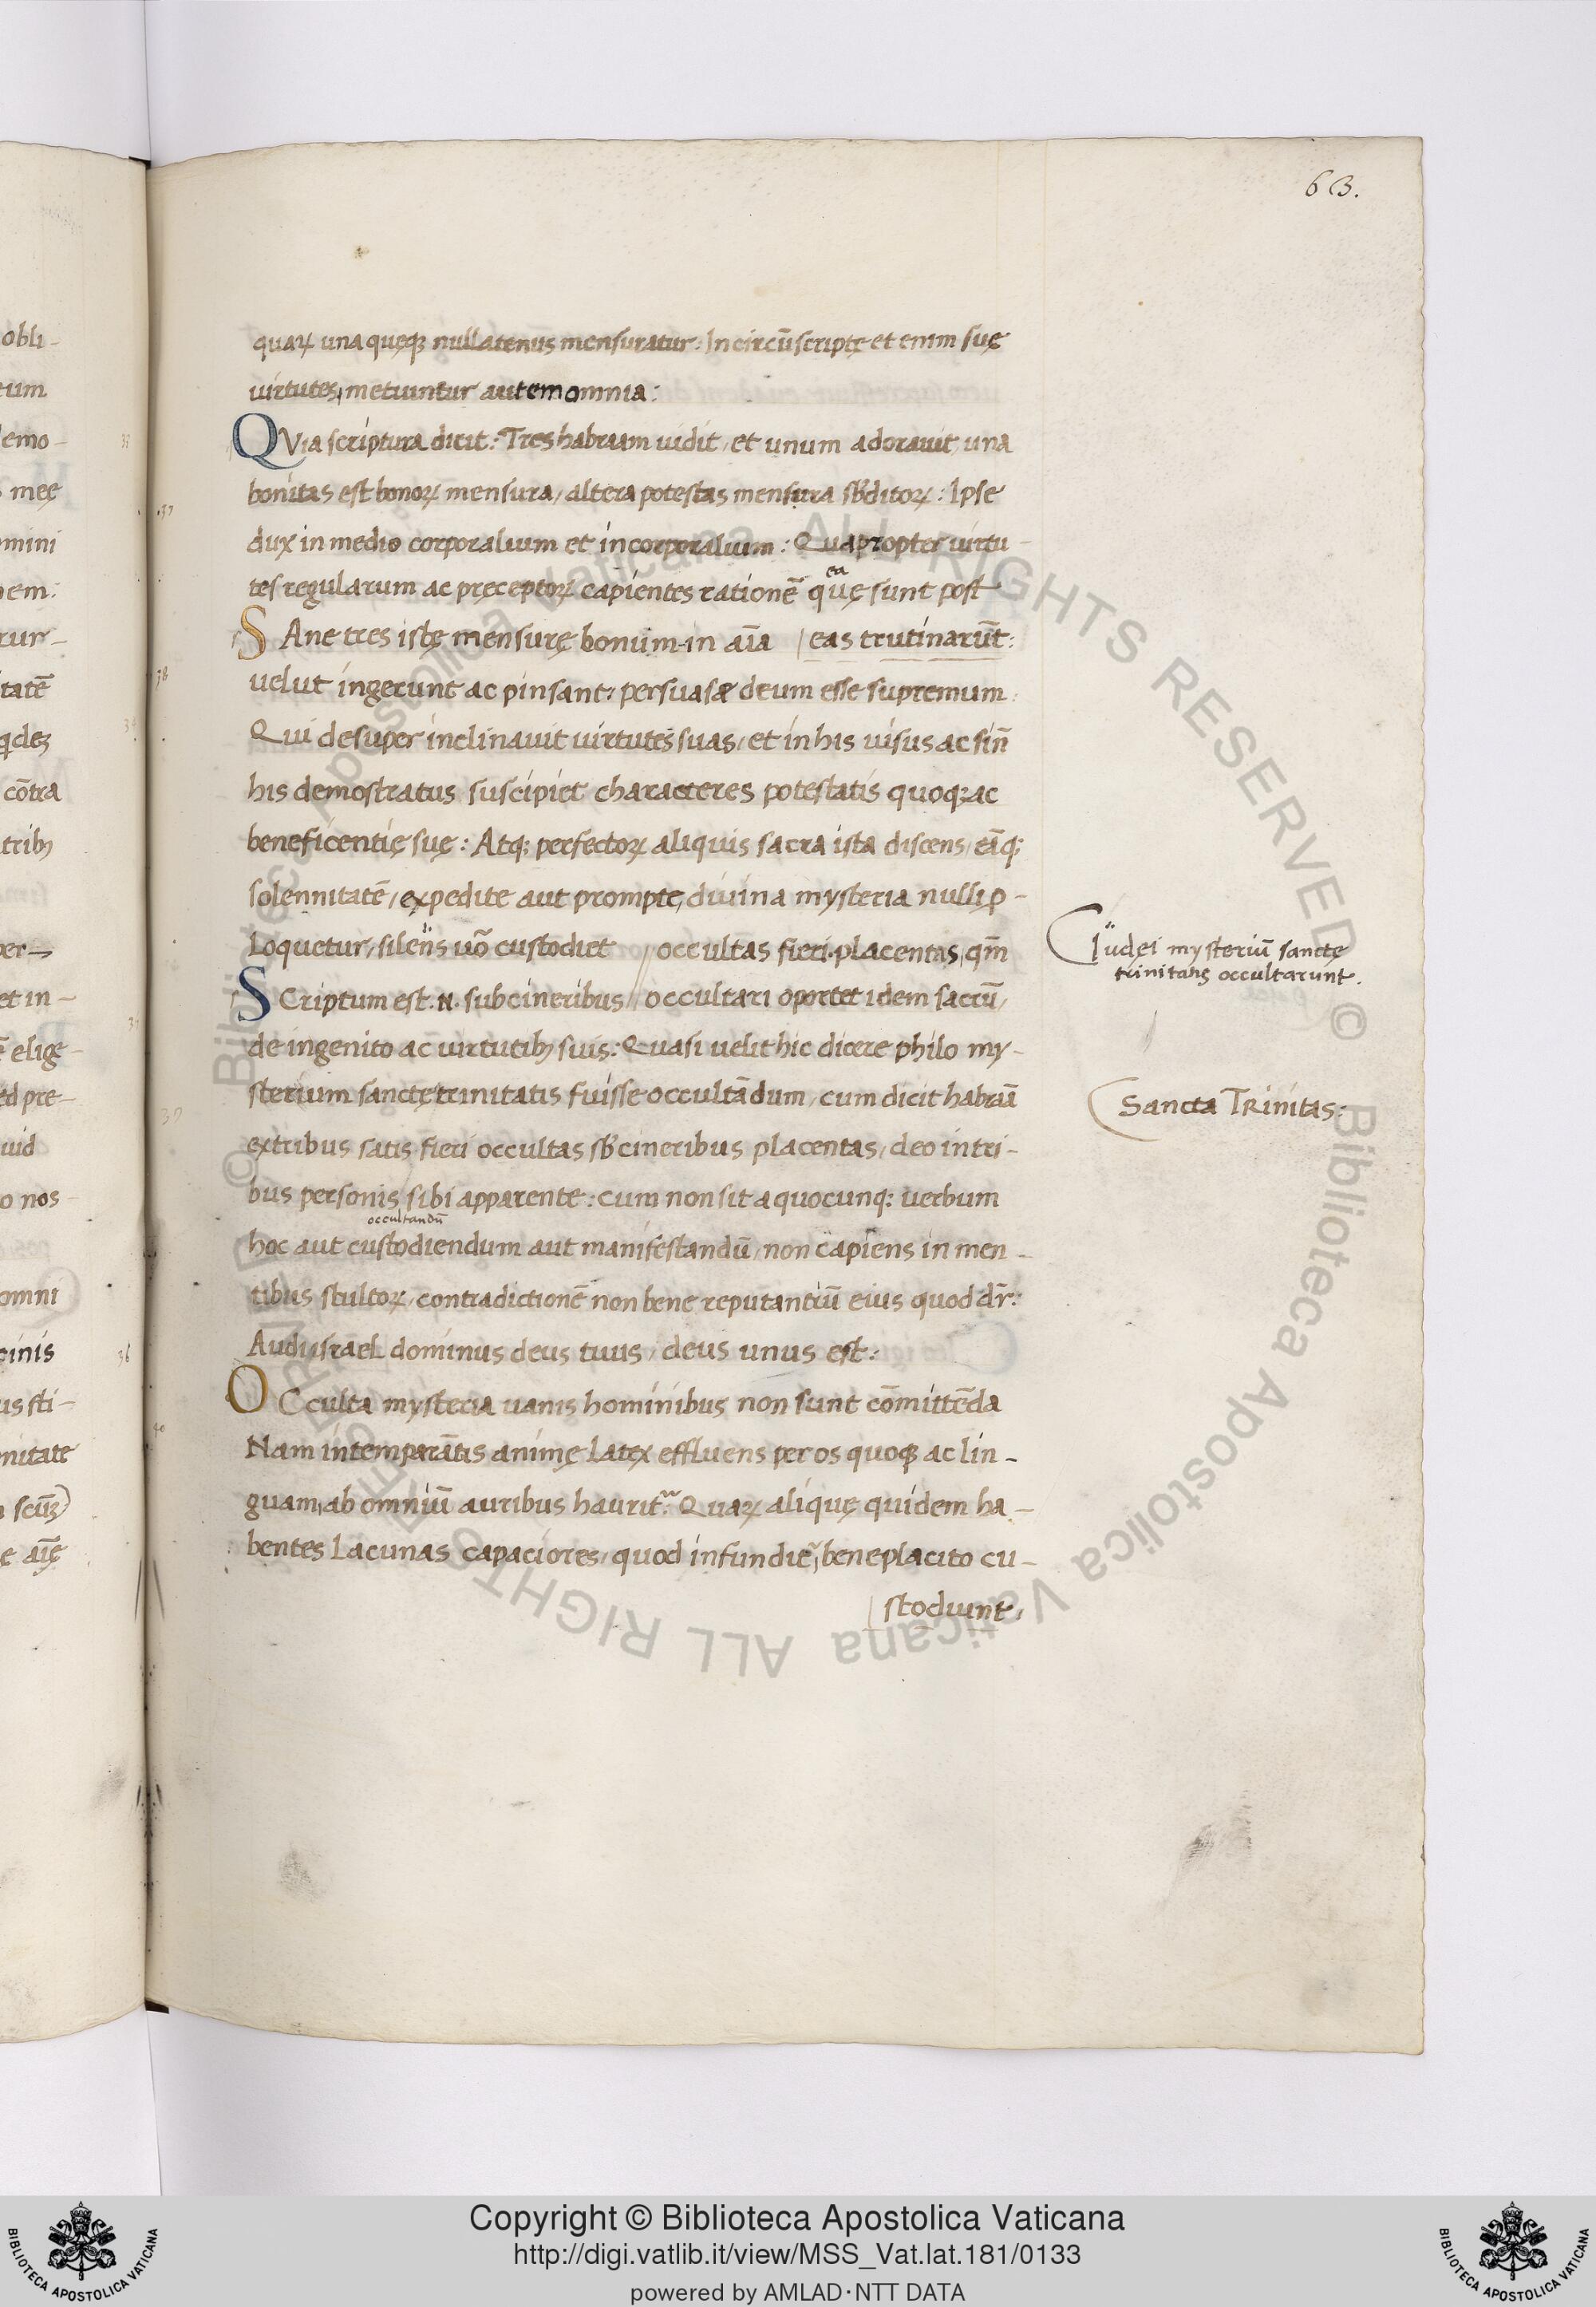 63.
quaꝝ una quęqꝫ nullatenus mensuratur: Incircūscriptę et enim suę
virtutes, metuuntur autem omnia:
QVia scriptura dicit: Tres habraam uidit, et unum adorauit, una
bonitas est bonoꝝ mensura, altera potestas mensura sb̄ditoꝝ: Ipse
dux in medio corporalium et incorporalium: Quapropter uirtu
tes regularum ac pręceptoꝝ capientes rationē quę sunt post
ea
SAne tres istę mensurę bonum in aīa | eas trutinarūt:
uelut ingerunt ac pinsant: persuasæ deum esse supremum:
Qui desuper inclinauit uirtutes suas, et in his uisus ac sin̄
his demostratus suscipiet characteres potestatis quoqꝫ ac
beneficentię suę: Atqꝫ perfectoꝝ aliquis sacra ista discens, eāqꝫ
solennitatē, expedite aut prompte, diuina mysteria nulli ꝓ-
loquetur, silens uo᷃ custodiet // occultas fieri placentas, qm̄
SCriptum est .N. sub cineribus // occultari oportet idem sacrū,
de ingenito ac uirtutibꝫ suis: Quasi uelit hic dicere philo my-
sterium sanctę trinitatis fuisse occultādum, cum dicit habraā
ex tribus satis fieri occultas sb̄ cineribus placentas, deo in tri-
bus personis sibi apparente: cum non sit a quocunqꝫ uerbum
occultandū
hoc aut custodiendum aut manifestandū, non capiens in men-
tibus stultoꝝ, contradictionē non bene reputantiū eius quod dr̄:
Audi israel dominus deus tuus, deus unus est:
OCculta mysteria uanis hominibus non sunt cōmittēda
Nam intemperātis animę latex effluens per os quoqꝫ ac lin-
guam, ab omniū auribus haurit᷑: Quaꝝ aliquę quidem ha-
bentes lacunas capaciores, quod infundit᷑, beneplacito cu-
| stodiunt,
Iudei mysteriū sanctę
trinitatis occultarunt.
Sancta Trinitas:
obli-
tum
demo-
mee
mini
nem:
rur-
tatē
qdeꝫ
cōtra
tribꝫ
per-
et in-
elige-
ed pre-
uid
o nos
omni
cinis
us sti-
nitate
scūꝫ)
e aīę
37
38
39
40
36
© Biblioteca Apostolica Vaticana ALL RIGHTS RESERVED © Biblioteca Apostolica Vaticana ALL RIGHTS RESERVED
Copyright © Biblioteca Apostolica Vaticana
http://digi.vatlib.it/view/MSS_Vat.lat.181/0133
powered by AMLAD·NTT DATA
BIBLIOTECA APOSTOLICA VATICANA
BIBLIOTECA APOSTOLICA VATICANA